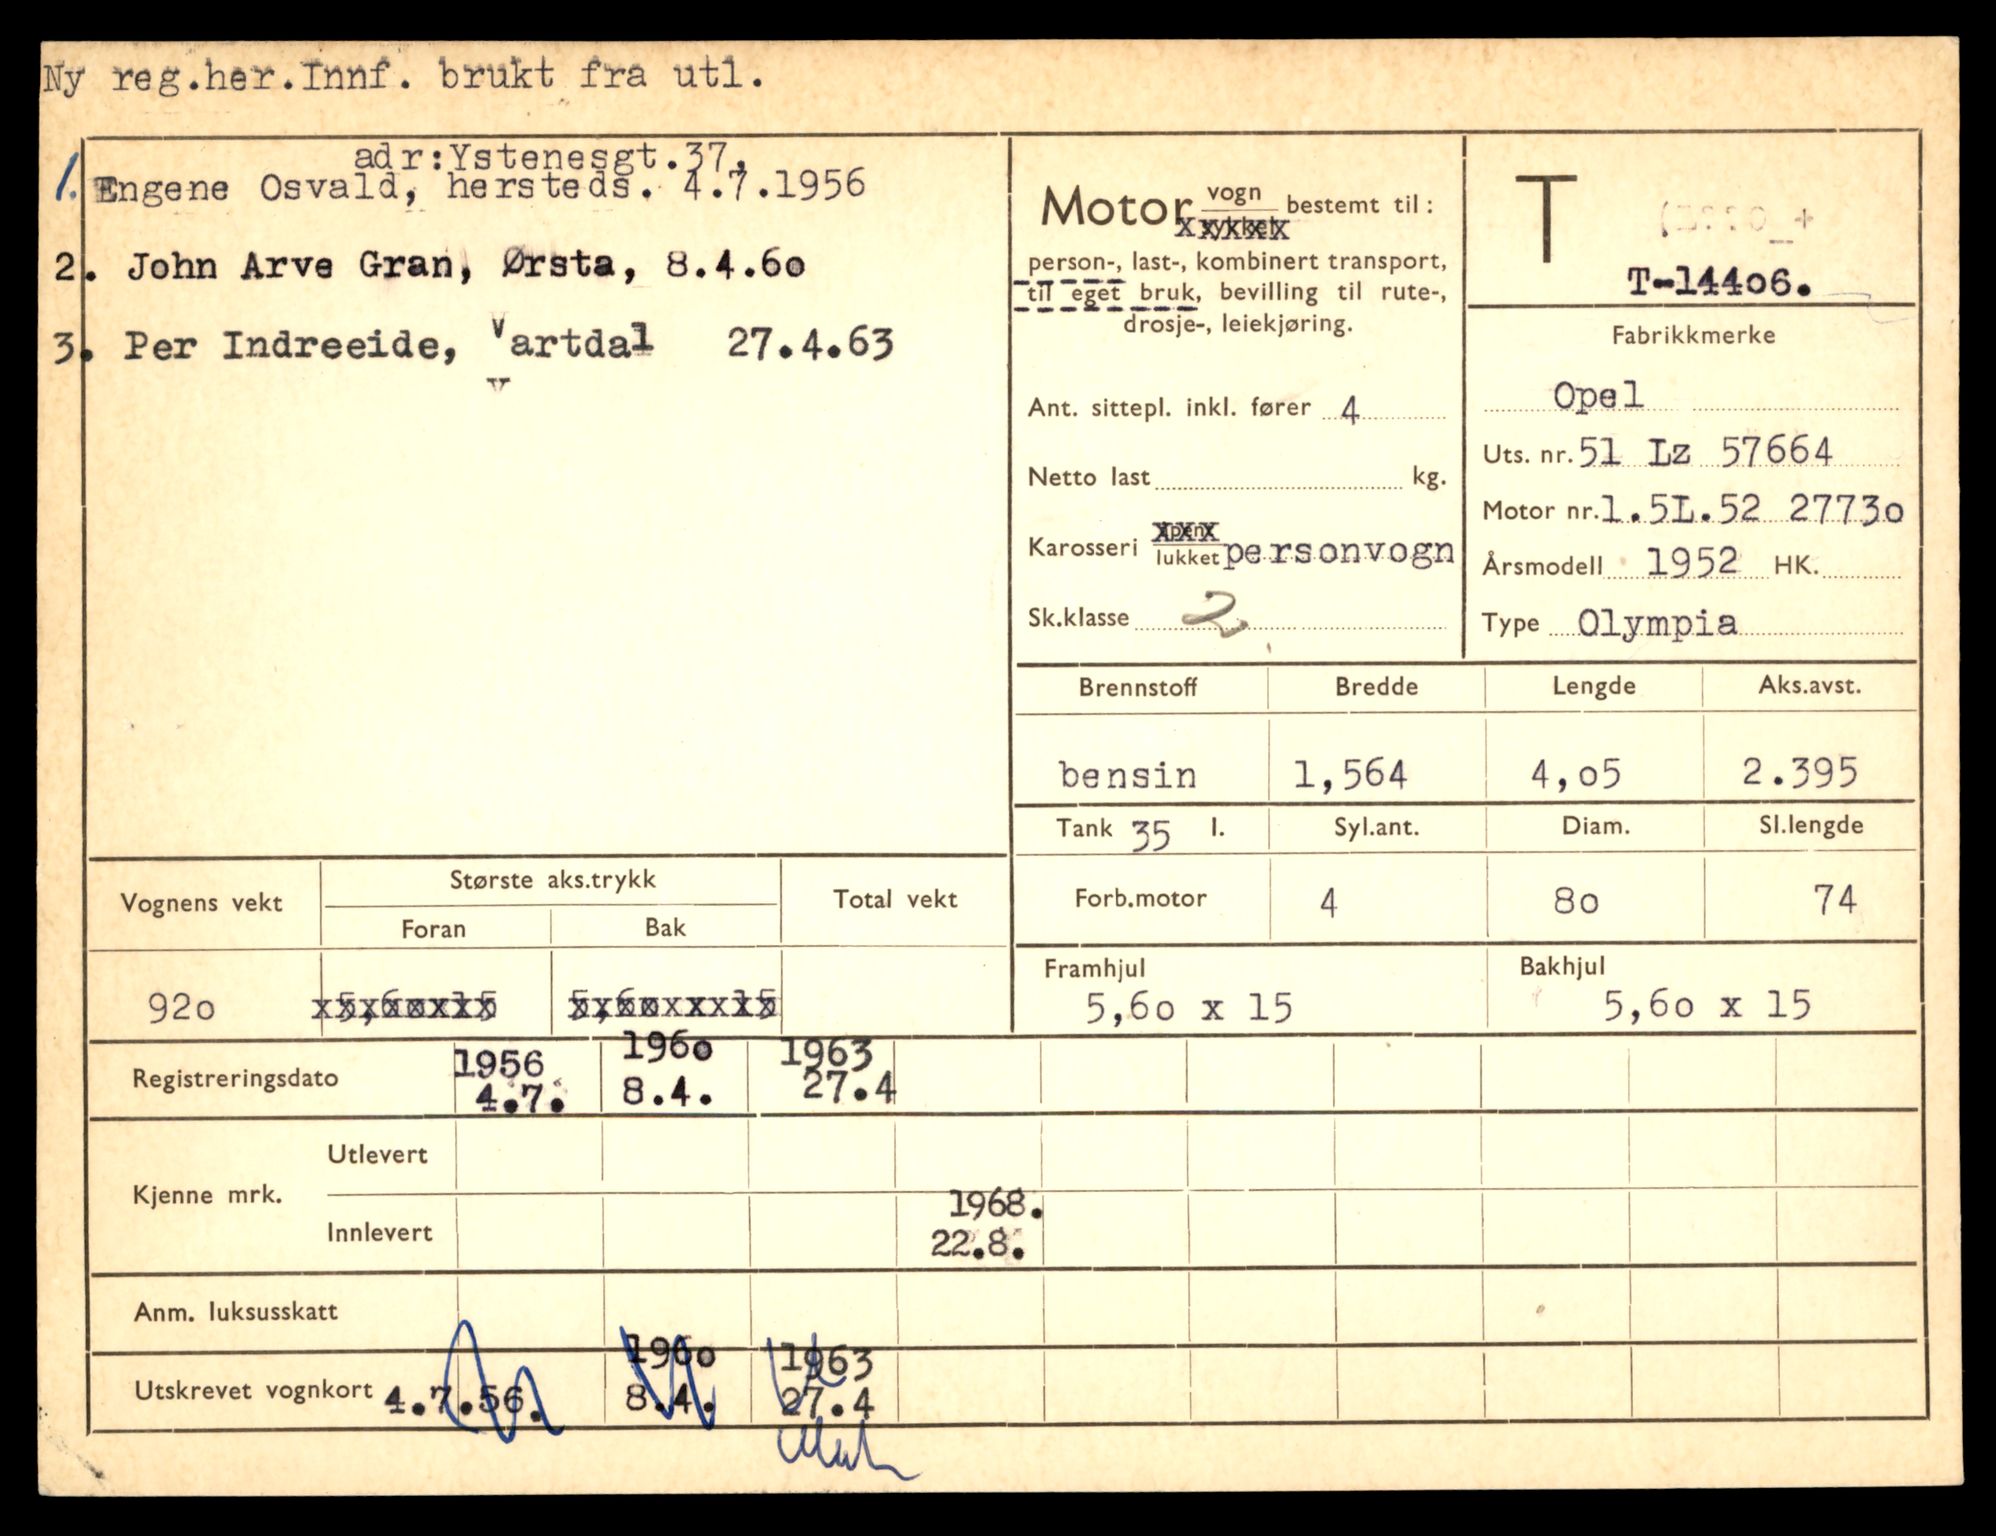 Ny reg.her.Innf. brukt fra utl.
adr:Ystenesgt.37,
1. Engene Osvald, hersteds. 4.7.1956
2. John Arve Gran, Ørsta, 8.4.6o
3. Per Indreeide, Vartdal 27.4.63
Motor vogn bestemt til:
person-, last-, kombinert transport,
til eget bruk, bevilling til rute-,
drosje-, leiekjøring.
Ant. sittepl. inkl. fører 4
Netto last kg.
Karosseri lukket personvogn
Sk.klasse 2
T
T-144o6.
Fabrikkmerke
Opel
Uts. nr. 51 Lz 57664
Motor nr. 1.5L.52 2773o
Årsmodell 1952 HK.
Type Olympia
Brennstoff Bredde Lengde Aks.avst.
bensin 1,564 4,o5 2.395
Tank 35 l. Syl.ant. Diam. Sl.lengde
Forb.motor 4 8o 74
Framhjul Bakhjul
5,6o x 15 5,6o x 15
Vognens vekt Største aks.trykk Total vekt
Foran Bak
92o 5,6o x 15 5,6o x 15
Registreringsdato 1956 196o 1963
4.7. 8.4. 27.4
Kjenne mrk. Utlevert
Innlevert 1968.
22.8.
Anm. luksusskatt
Utskrevet vognkort 4.7.56. 196o 1963
8.4. 27.4